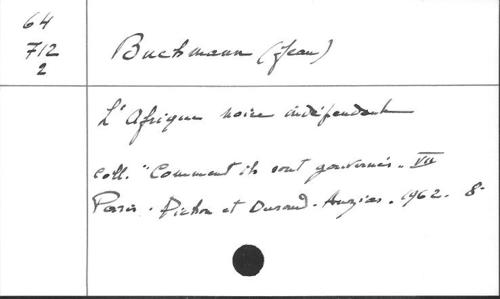 64
712
2
Buchmann (Jean)
L'Afrique noire indépendante
coll. "Comment ils sont gouvernés. VII
Paris. Pichon et Durand-Auzias. 1962. 8°